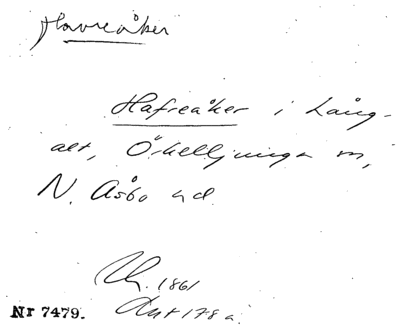 Havreåker
Hafreåker i Lång-
alt, Örkelljunga sn,
N. Åsbo hd.
1861
Akt 178 a
Nr 7479.